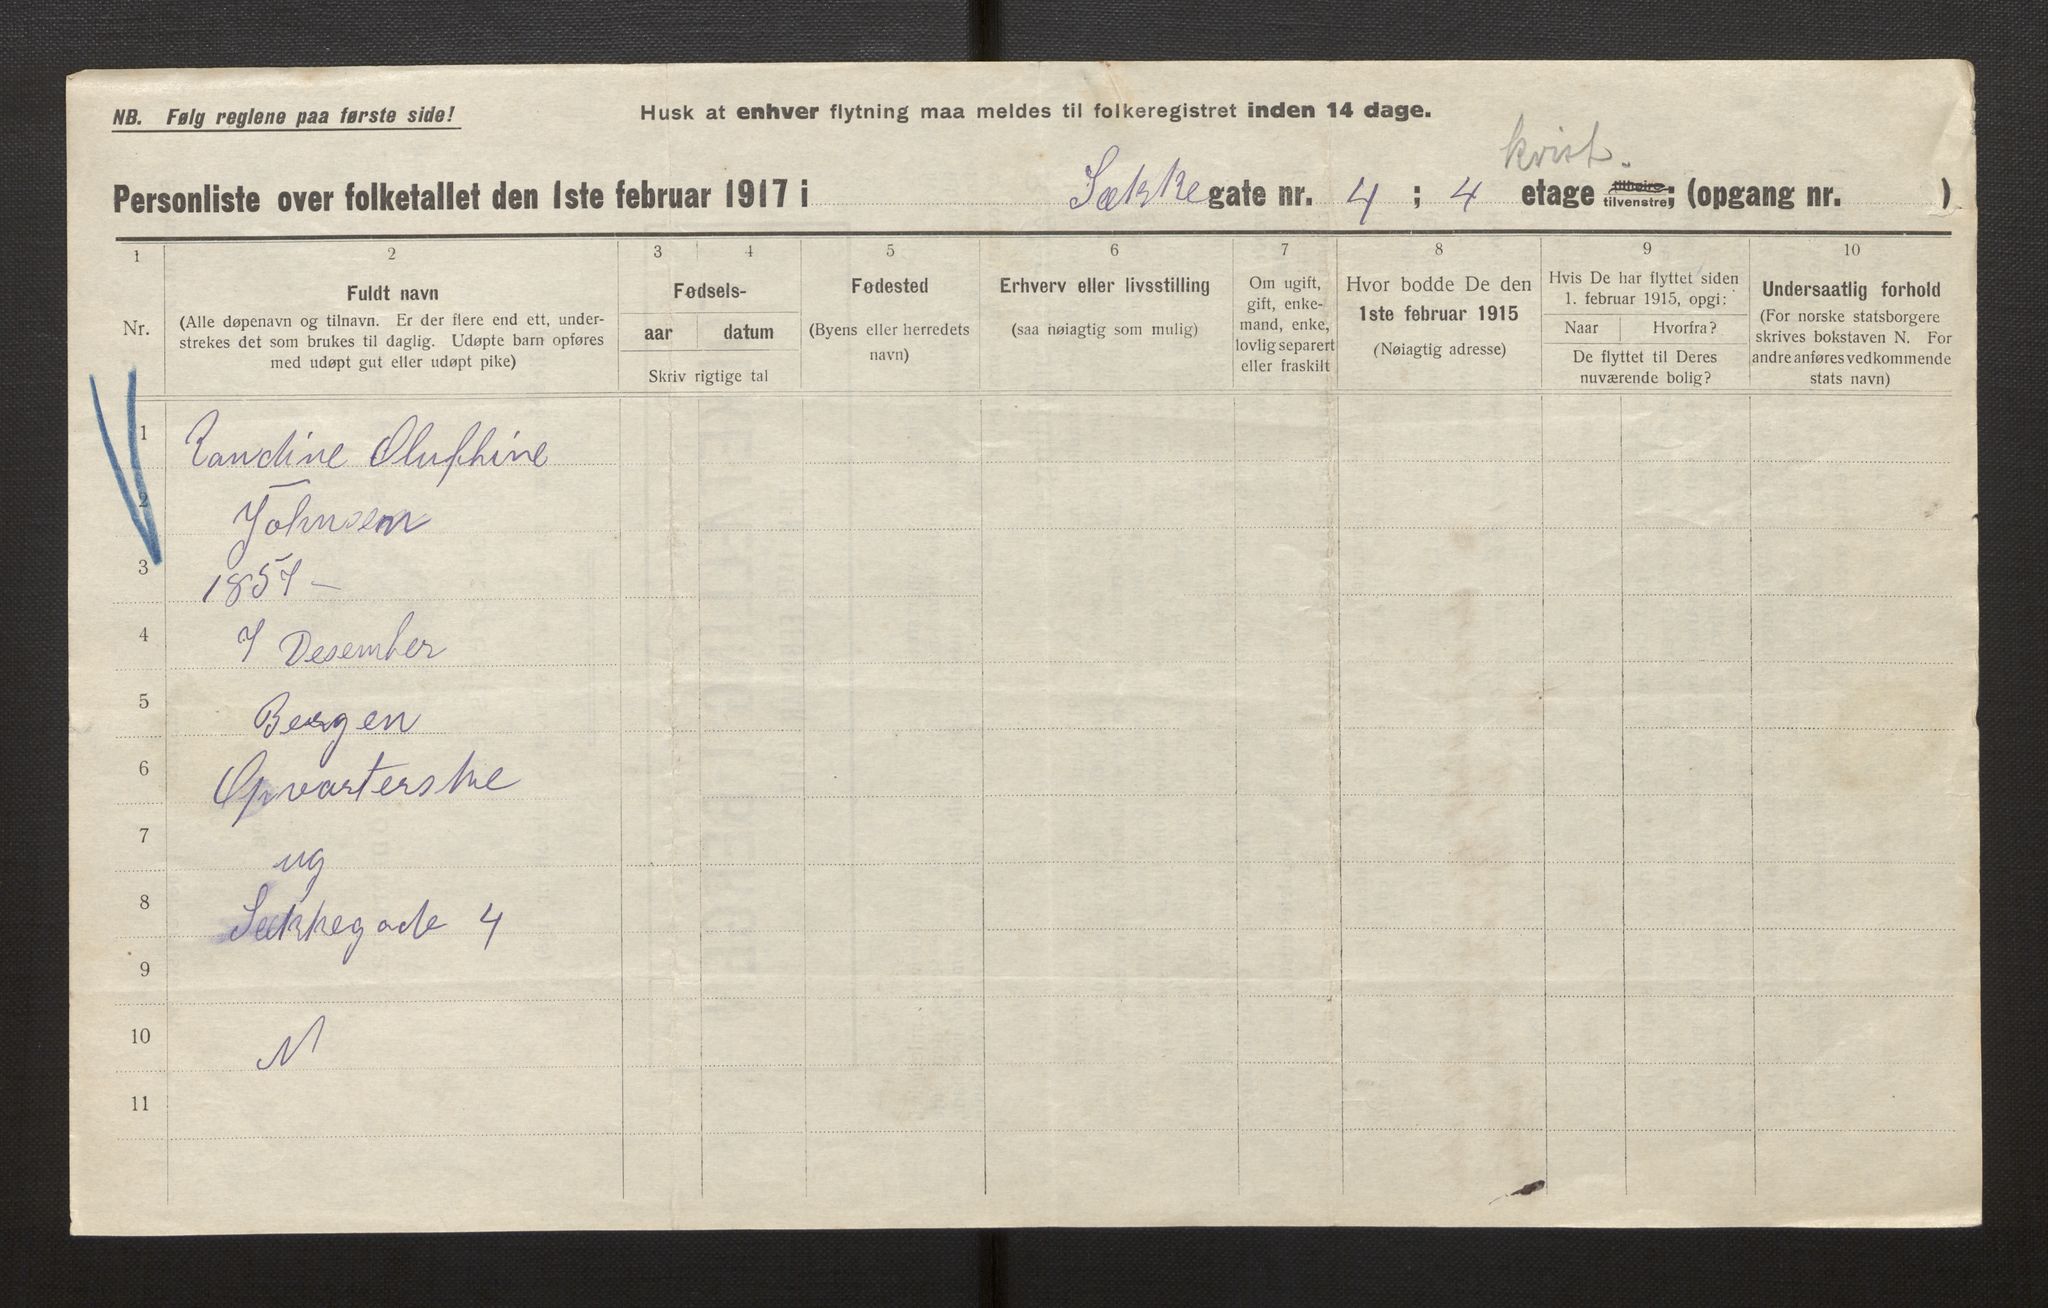 NB. Følg reglene paa første side!
Husk at enhver flytning maa meldes til folkeregistret inden 14 dage.
kvist.
Personliste over folketallet den 1ste februar 1917 i Sække gate nr. 4 ; 4 etage tilhøire tilvenstre; (opgang nr. )
1 2 3 4 5 6 7 8 9 10
Nr.
Fuldt navn
(Alle døpenavn og tilnavn. Er der flere end ett, under-
strekes det som brukes til daglig. Udøpte barn opføres
med udøpt gut eller udøpt pike)
Fødsels-
aar datum
Skriv rigtige tal
Fødested
(Byens eller herredets
navn)
Erhverv eller livsstilling
(saa nøiagtig som mulig)
Om ugift,
gift, enke-
mand, enke,
lovlig separert
eller fraskilt
Hvor bodde De den
1ste februar 1915
(Nøiagtig adresse)
Hvis De har flyttet siden
1. februar 1915, opgi:
Naar Hvorfra?
De flyttet til Deres
nuværende bolig?
Undersaatlig forhold
(For norske statsborgere
skrives bokstaven N. For
andre anføres vedkommende
stats navn)
1 Randine Oluphine
2 Johnsen
3 1857 –
4 7 Desember
5 Bergen
6 Opvarterske
7 ug
8 Sækkegade 4
9
10 N
11